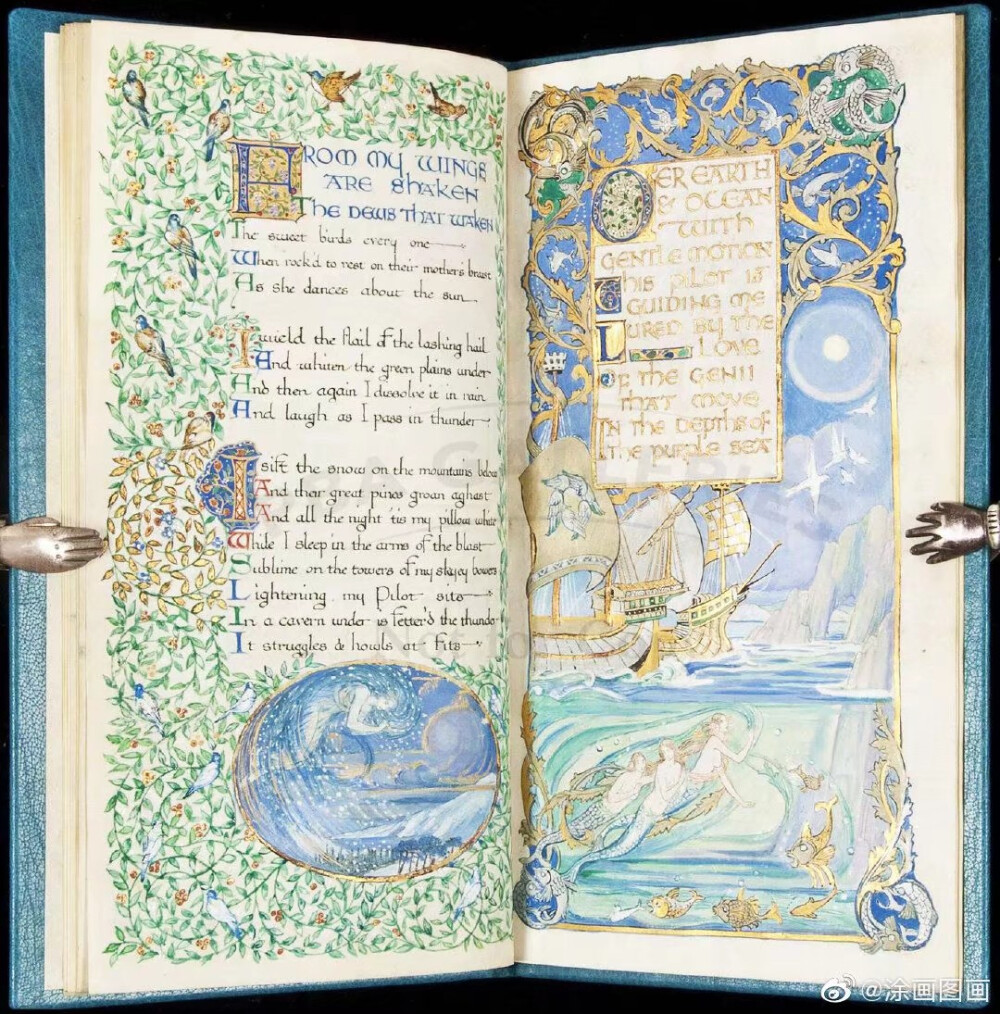 FROM MY WINGS
ARE SHAKEN
THE DEWS THAT WAKEN
The sweet birds every one
When rock'd to rest on their mother's breast
As she dances about the sun
I wield the flail of the lashing hail
And whiten the green plains under
And then again I dissolve it in rain
And laugh as I pass in thunder
I sift the snow on the mountains below
And their great pines groan aghast
And all the night 'tis my pillow white
While I sleep in the arms of the blast
Sublime on the towers of my skyey bowers
Lightening my Pilot sits
In a cavern under is fetter'd the thunder
It struggles & howls at Fits
OER EARTH
& OCEAN
WITH
GENTLE MOTION
THIS PILOT IS
GUIDING ME
LURED BY THE
LOVE
OF THE GENII
THAT MOVE
IN THE DEPTHS OF
THE PURPLE SEA
@涂画图画